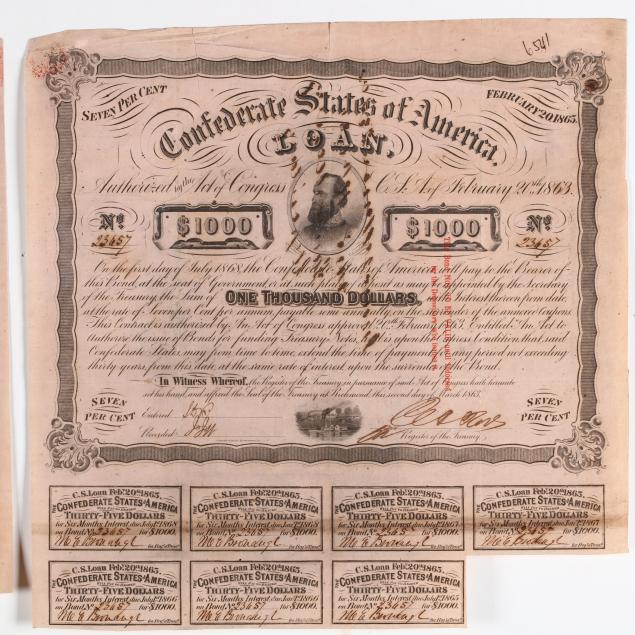 6541
SEVEN PER CENT
FEBRUARY 20, 1863.
Confederate States of America
LOAN.
Authorized by the Act of Congress C.S.A. of February 20th 1863.
No
23657
$1000
$1000
No
23657
On the first day of July 1868, the Confederate States of America will pay to the Bearer of
this Bond, at the seat of Government or at such place of deposit as may be appointed by the Secretary
of the Treasury, the Sum of ONE THOUSAND DOLLARS, with Interest thereon from date
at the rate of Seven per Cent per annum payable semi annually on the surrender of the annexed Coupons.
This Contract is authorized by An Act of Congress approved 20th February 1863. Entitled "An Act to
authorise the issue of Bonds for funding Treasury Notes," upon the Express Condition that said
Confederate States, may from time to time extend the time of payment for any period not exceeding
thirty years from this date at the same rate of interest upon the surrender of this Bond.
In Witness Whereof, the Register of the Treasury, in pursuance of said Act of Congress hath hereunto
set his hand, and affixed the Seal of the Treasury at Richmond, this second day of March 1863.
SEVEN PER CENT
Entered
Recorded
Register of the Treasury
SEVEN PER CENT
C.S. Loan Feby. 20th 1863.
THE CONFEDERATE STATES OF AMERICA
WILL PAY TO BEARER
THIRTY-FIVE DOLLARS
for Six Months Interest due July 1st 1868
on Bond No 23657 for $1000.
M. E. Bronaugh
for Reg'r Treas'y
C.S. Loan Feby. 20th 1863.
THE CONFEDERATE STATES OF AMERICA
WILL PAY TO BEARER
THIRTY-FIVE DOLLARS
for Six Months Interest due Jany 1st 1868
on Bond No 23657 for $1000.
M. E. Bronaugh
for Reg'r Treas'y
C.S. Loan Feby. 20th 1863.
THE CONFEDERATE STATES OF AMERICA
WILL PAY TO BEARER
THIRTY-FIVE DOLLARS
for Six Months Interest due July 1st 1867
on Bond No 23657 for $1000.
M. E. Bronaugh
for Reg'r Treas'y
C.S. Loan Feby. 20th 1863.
THE CONFEDERATE STATES OF AMERICA
WILL PAY TO BEARER
THIRTY-FIVE DOLLARS
for Six Months Interest due Jany 1st 1867
on Bond No 23657 for $1000.
M. E. Bronaugh
for Reg'r Treas'y
C.S. Loan Feby. 20th 1863.
THE CONFEDERATE STATES OF AMERICA
WILL PAY TO BEARER
THIRTY-FIVE DOLLARS
for Six Months Interest due July 1st 1866
on Bond No 23657 for $1000.
M. E. Bronaugh
for Reg'r Treas'y
C.S. Loan Feby. 20th 1863.
THE CONFEDERATE STATES OF AMERICA
WILL PAY TO BEARER
THIRTY-FIVE DOLLARS
for Six Months Interest due Jany 1st 1866
on Bond No 23657 for $1000.
M. E. Bronaugh
for Reg'r Treas'y
C.S. Loan Feby. 20th 1863.
THE CONFEDERATE STATES OF AMERICA
WILL PAY TO BEARER
THIRTY-FIVE DOLLARS
for Six Months Interest due July 1st 1865
on Bond No 23657 for $1000.
M. E. Bronaugh
for Reg'r Treas'y